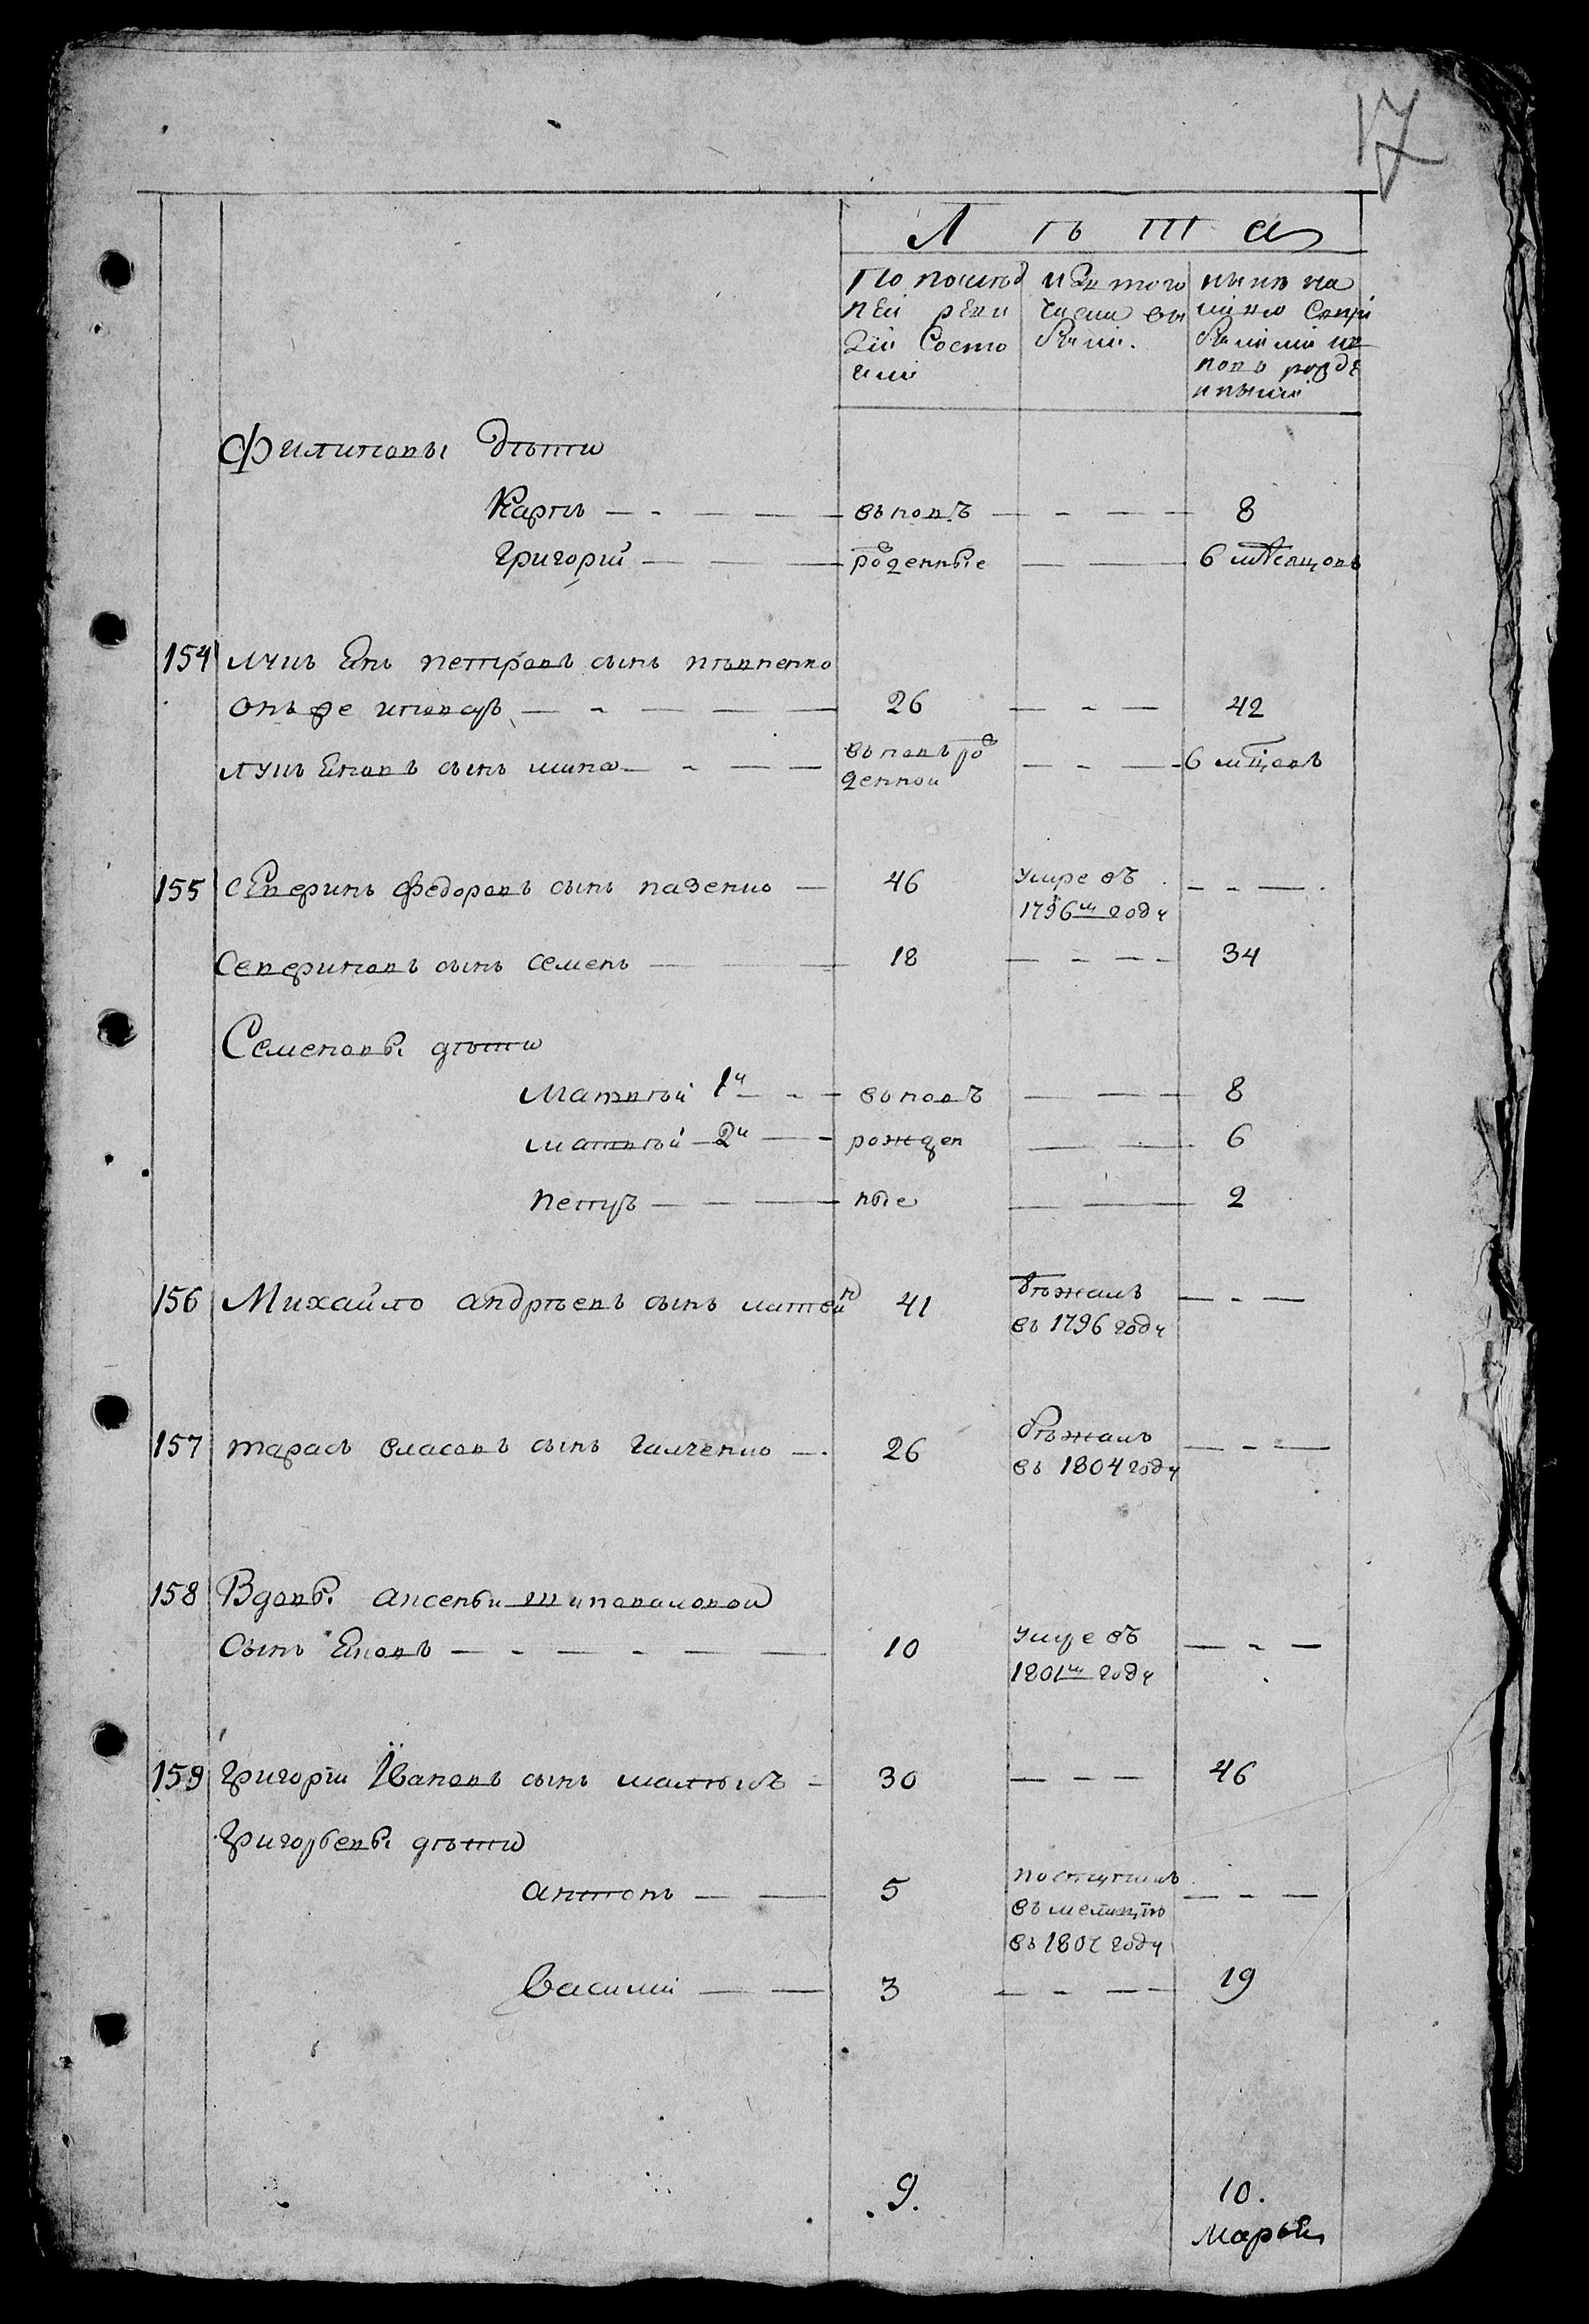 17
Лѣта
По послѣд
ней реви
зіи состо
яли
изъ того
числа вы
были.
нынѣ на
лицо съ при
былыми и в
новь рожде
нными
Филиповы дѣти
Карпъ — вновъ — 8
Григорій — рожденные — 6 мѣсяцовъ
154 Лукиянъ Петровъ сынъ
онъ же — 26 — 42
сынъ — вновь ро — 6 мѣсцовъ
жденной
155 Северинъ Федоровъ сынъ Назенко — 46 умре въ —
1796м году
Севериновъ сынъ Семенъ — 18 — 34
Семеновы дѣти
Матвѣй 1й — вновъ — 8
Матвѣй 2й — рожден — 6
Петръ — ные — 2
156 Михайло Андрѣевъ сынъ 41 бѣжалъ —
въ 1796 году
157 Тарасъ Власовъ сынъ Галченко — 26 бѣжалъ —
въ 1804 году
158 Вдовы Аксеньи Шиповаловой
сынъ Яковъ — 10 умре въ —
1801м году
159 Григорій Ивановъ сынъ — 30 — 46
Григорьевы дѣти
Антонъ — 5 поступилъ —
въ мелицію
въ 1807 году
Василій — 3 — 19
9. 10.